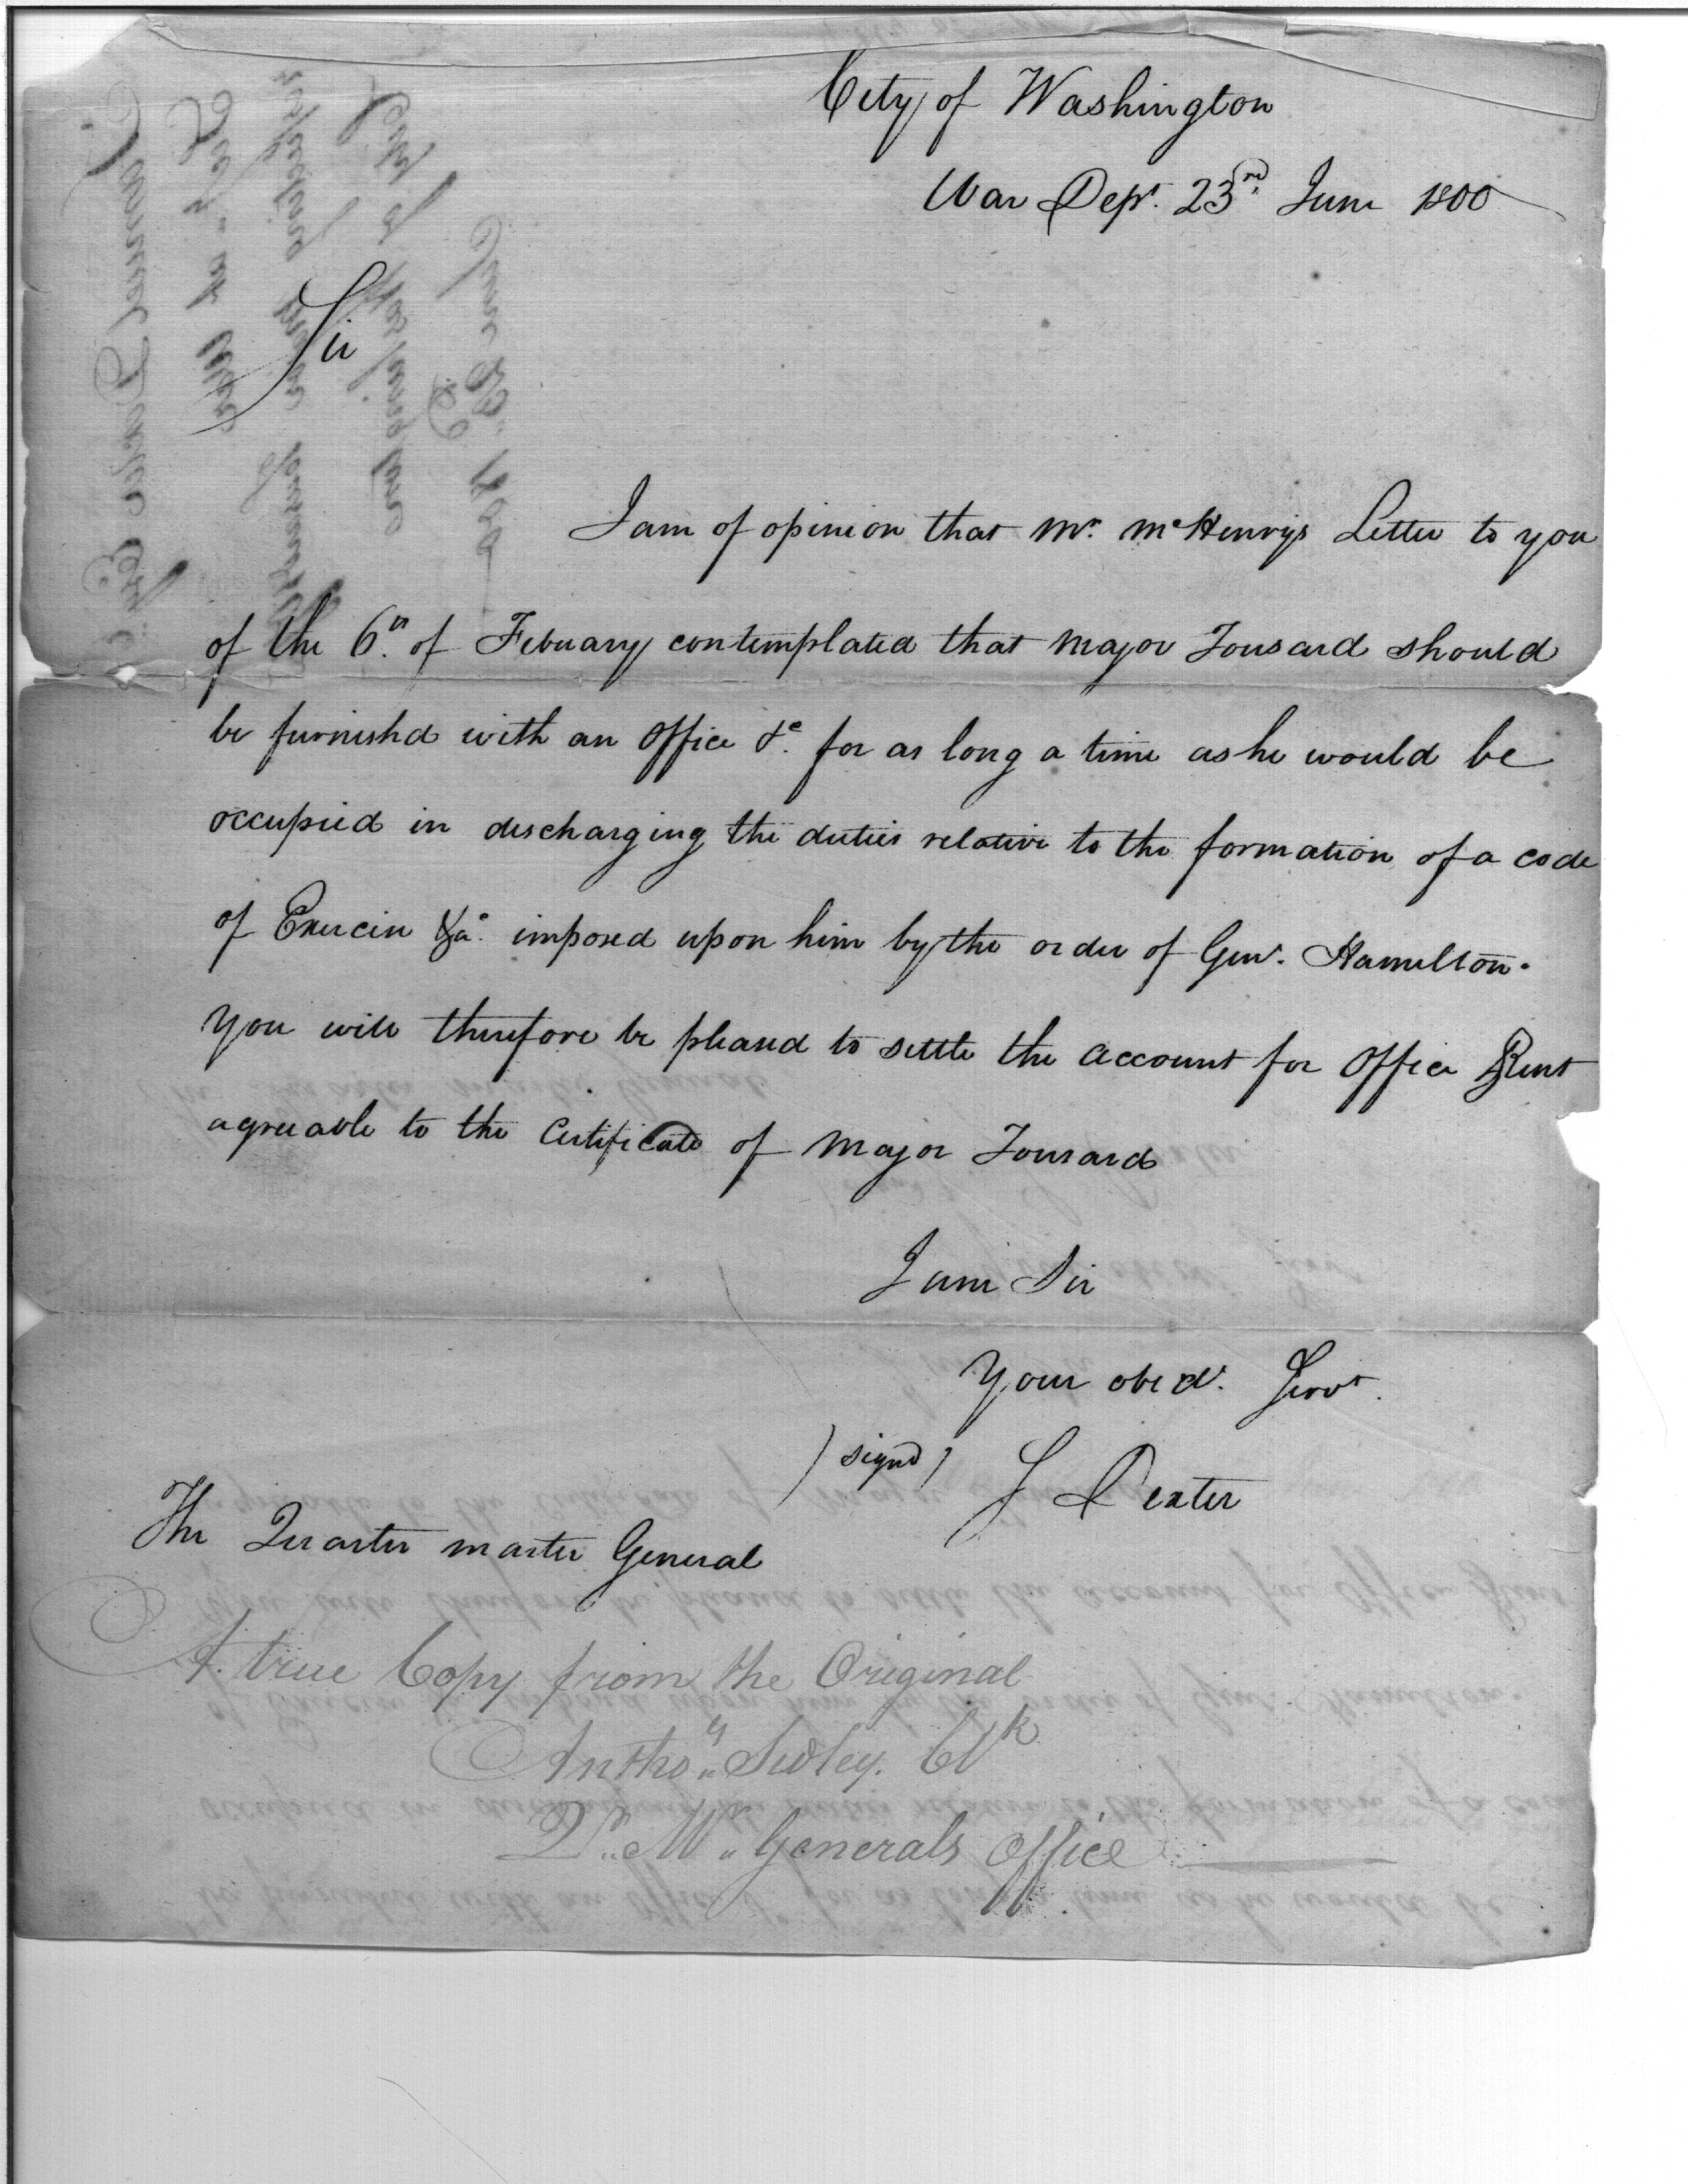 City of Washington
War Dept. 23rd June 1800
Sir
I am of opinion that Mr. McHenrys Letter to you
of the 6th of Febuary contemplated that Major Tousard should
be furnishd with an Office &c. for as long a time as he would be
occupied in discharging the duties relative to the formation of a code
of Exercise &ca. imposed upon him by the order of Genl. Hamilton.
You will therefore be pleased to settle the account for Office Rent
agreeable to the Certificate of Major Tousard
I am Sir
Your obed. Servt.
(signd) S Dexter
The Quarter master General
A true Copy from the Original
Anthoy. Clk
Qr. Mr. Generals Office